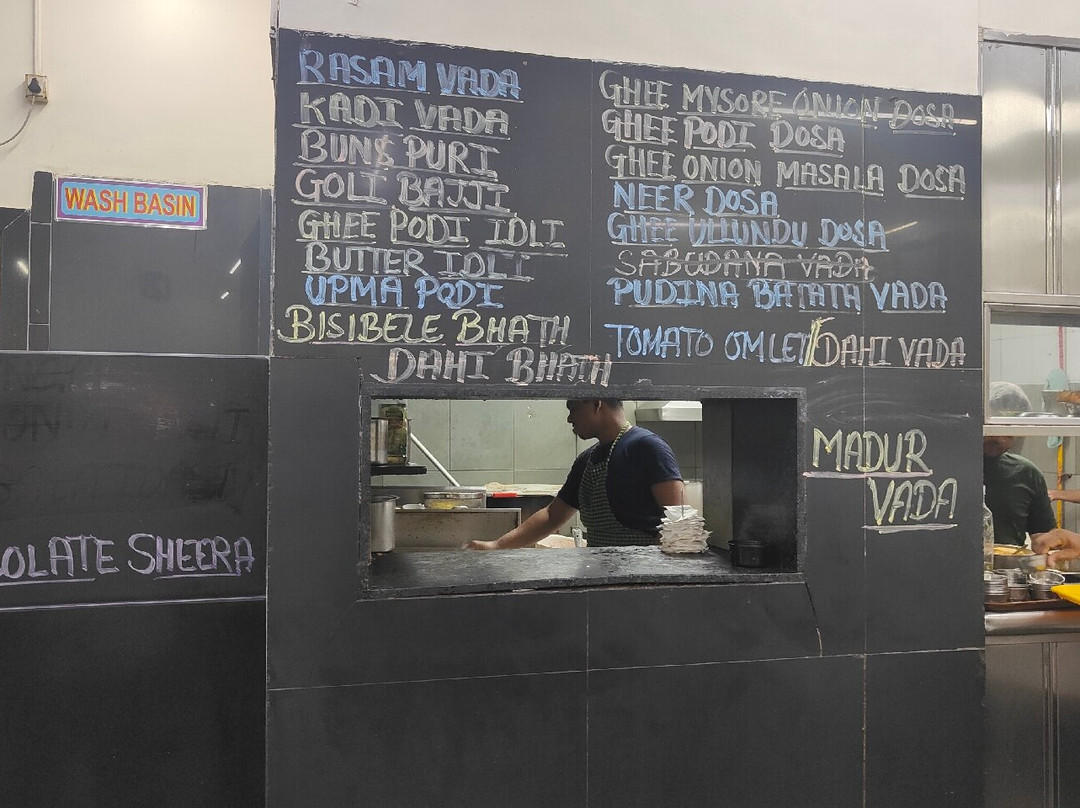 WASH BASIN
RASAM VADA
KADI VADA
BUNS PURI
GOLI BAJJI
GHEE PODI IDLI
BUTTER IDLI
UPMA PODI
BISIBELE BHATH
DAHI BHATH
GHEE MYSORE ONION DOSA
GHEE PODI DOSA
GHEE ONION MASALA DOSA
NEER DOSA
GHEE ULUNDU DOSA
SABUDANA VADA
PUDINA BATATA VADA
TOMATO OMLET/DAHI VADA
MADUR
VADA
OLATE SHEERA